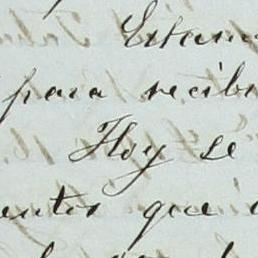 Estan
para recibi
Hoy se
entos que